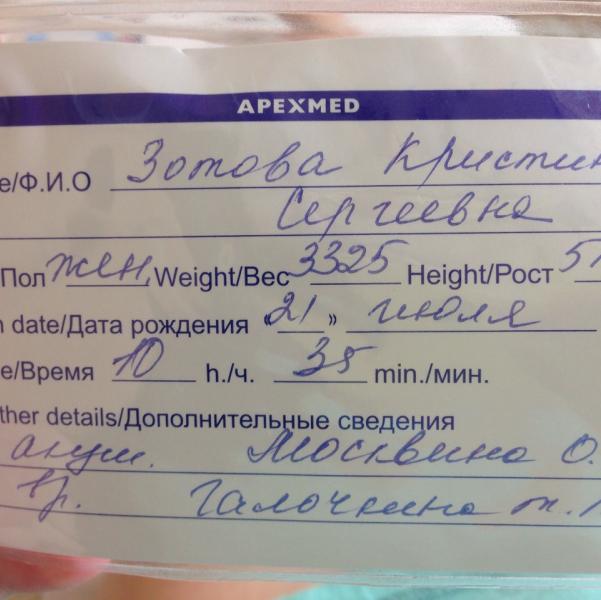 APEXMED
e/Ф.И.О Зотова Кристин
Сергеевна
Пол жен, Weight/Вес 3325 Height/Рост 51
n date/Дата рождения «21» июля
e/Время 10 h./ч. 35 min./мин.
ther details/Дополнительные сведения
акуш. Москвина О.
вр. Галочкина т.